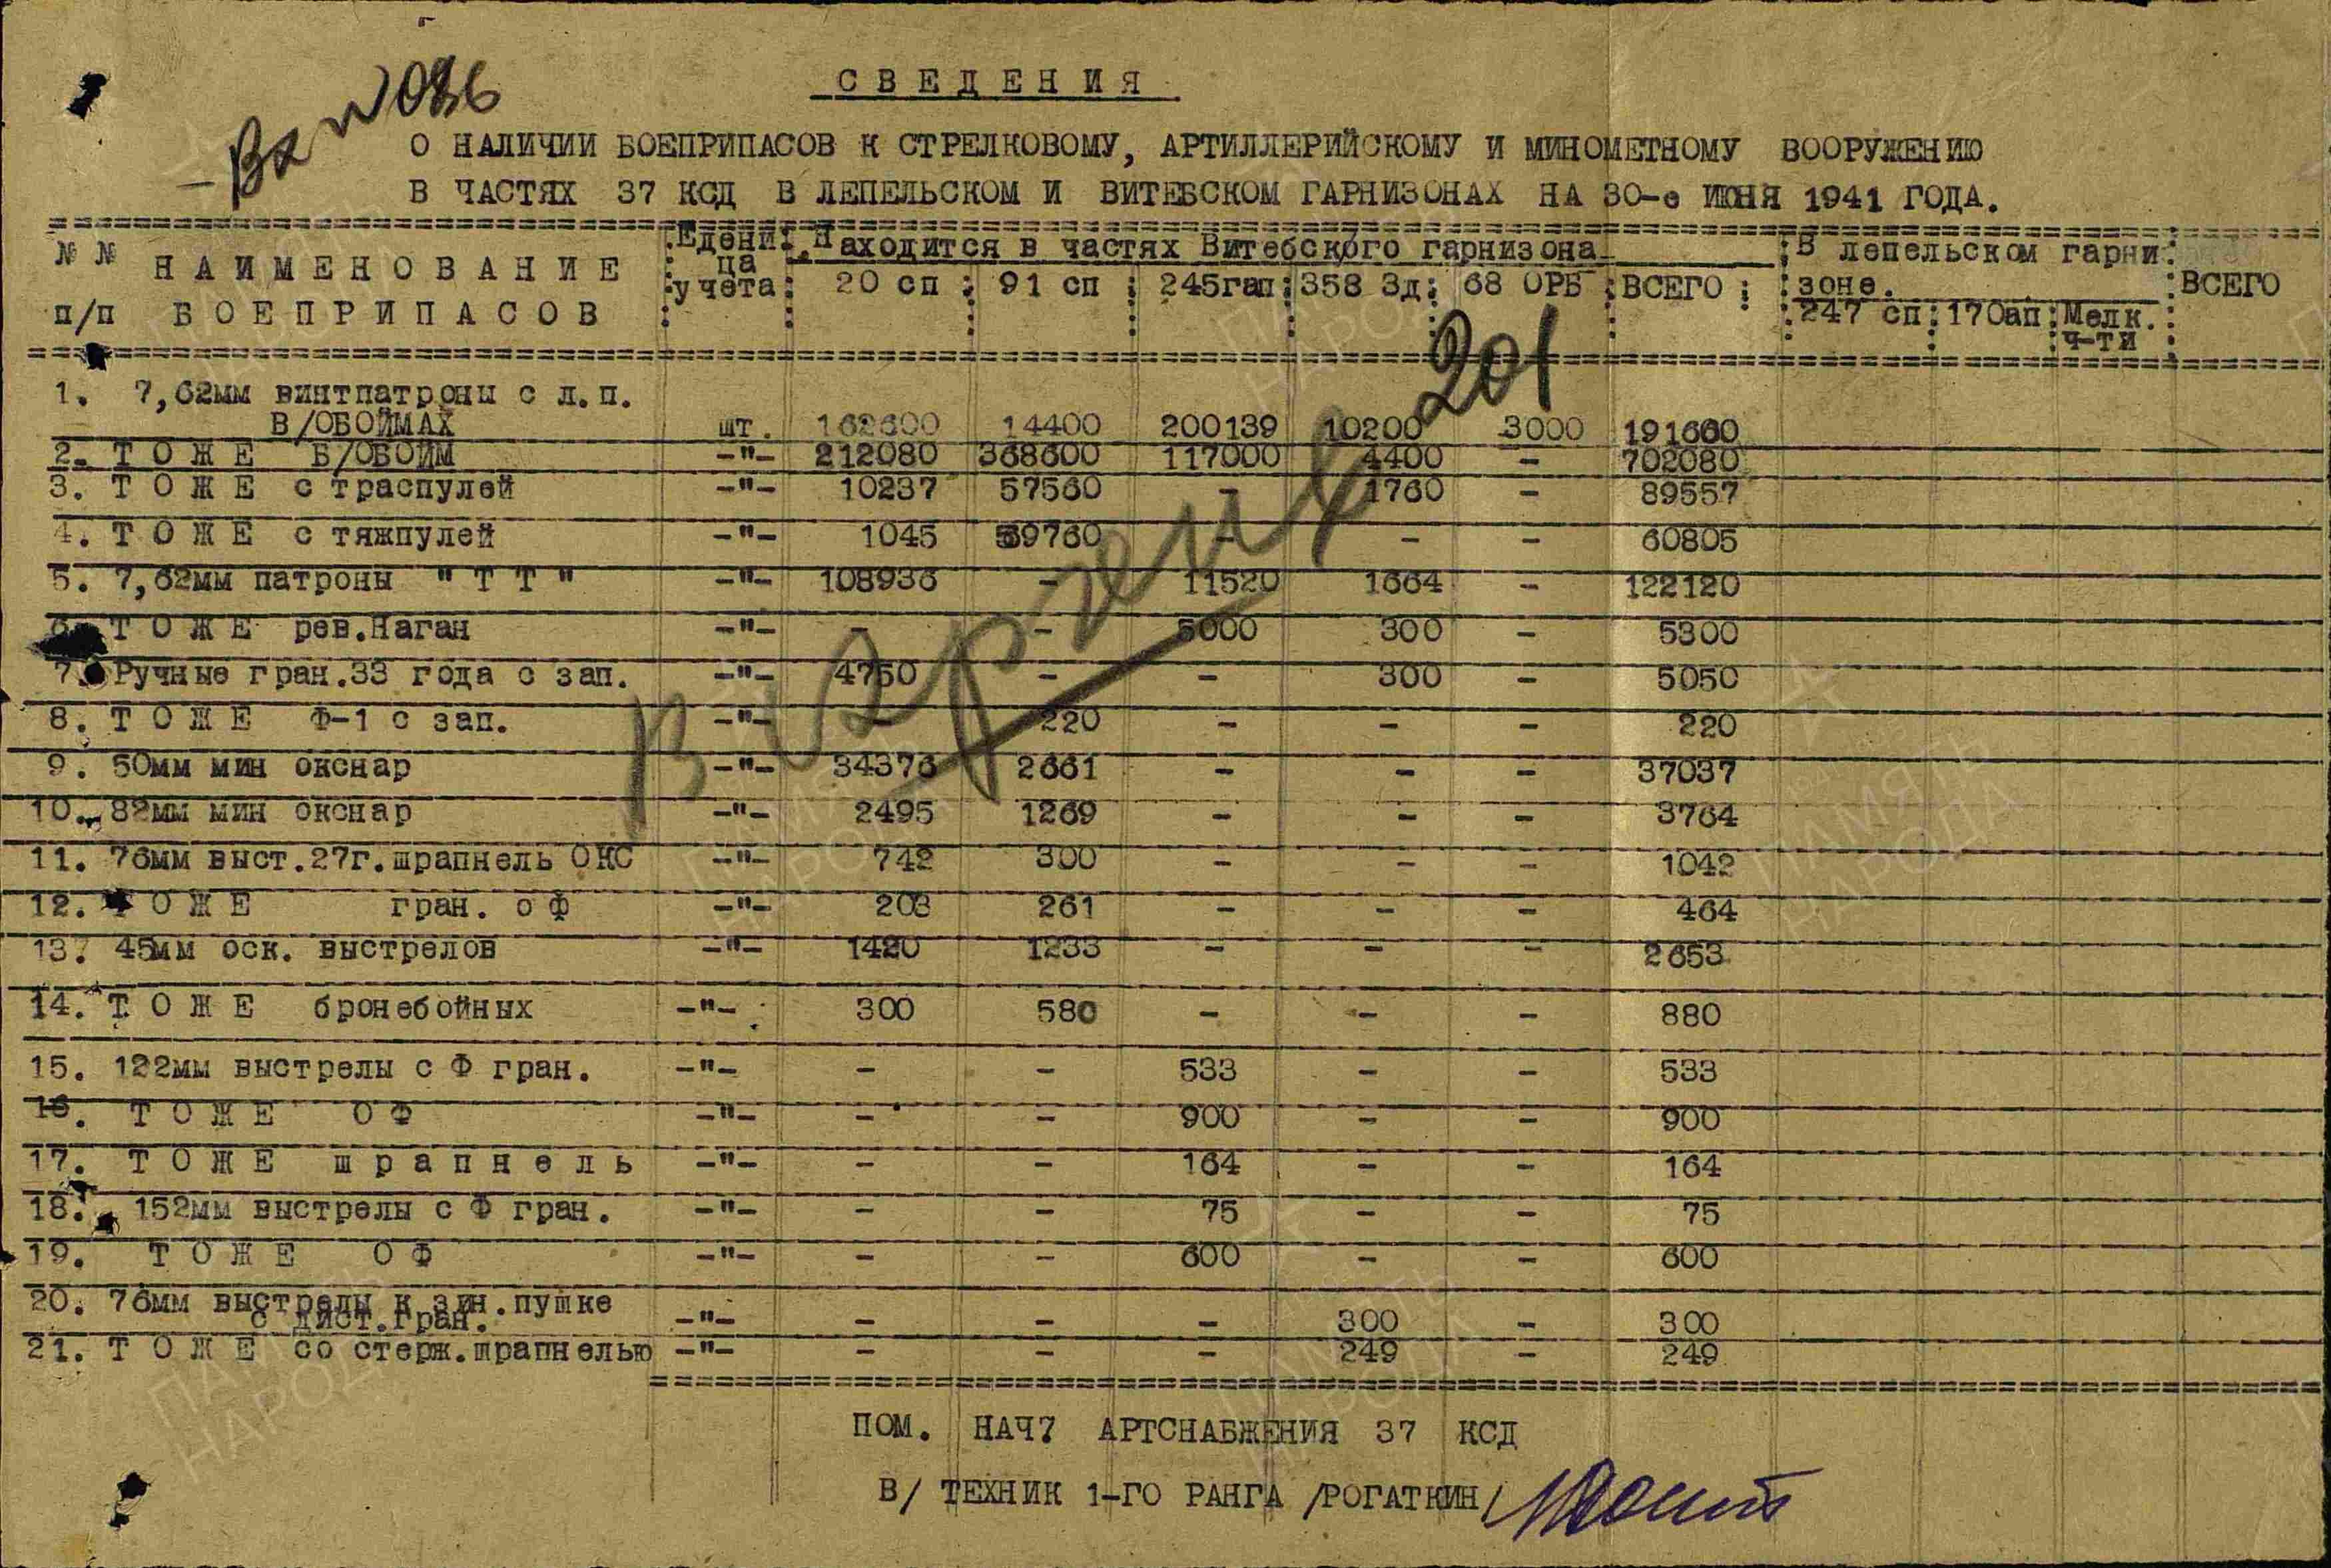 Вх № 086
СВЕДЕНИЯ
О НАЛИЧИИ БОЕПРИПАСОВ К СТРЕЛКОВОМУ, АРТИЛЛЕРИЙСКОМУ И МИНОМЕТНОМУ ВООРУЖЕНИЮ
В ЧАСТЯХ 37 КСД В ЛЕПЕЛЬСКОМ И ВИТЕБСКОМ ГАРНИЗОНАХ НА 30-е ИЮНЯ 1941 ГОДА.
№ № п/п НАИМЕНОВАНИЕ БОЕПРИПАСОВ Едени ца учета Находится в частях Витебского гарнизона В лепельском гарни зоне. ВСЕГО
20 сп 91 сп 245гап 358 Зд 68 ОРБ ВСЕГО 247 сп 170ап Мелк. ч-ти
201
В Арзених
1. 7,62мм винтпатроны с л.п.
В/ОБОЙМАХ шт. 162600 14400 200139 10200 3000 191660
2. ТОЖЕ Б/ОБОЙМ -"- 212080 368600 117000 4400 - 702080
3. ТОЖЕ с траспулей -"- 10237 57560 - 1760 - 89557
4. ТОЖЕ с тяжпулей -"- 1045 59760 - - - 60805
5. 7,62мм патроны "ТТ" -"- 108936 - 11520 1664 - 122120
6. ТОЖЕ рев.Наган -"- - - 5000 300 - 5300
7. Ручные гран.33 года с зап. -"- 4750 - - 300 - 5050
8. ТОЖЕ Ф-1 с зап. -"- - 220 - - - 220
9. 50мм мин окснар -"- 34376 2661 - - - 37037
10. 82мм мин окснар -"- 2495 1269 - - - 3764
11. 76мм выст.27г.шрапнель ОКС -"- 742 300 - - - 1042
12. ТОЖЕ гран. оФ -"- 203 261 - - - 464
13. 45мм оск. выстрелов -"- 1420 1233 - - - 2653
14. ТОЖЕ бронебойных -"- 300 580 - - - 880
15. 122мм выстрелы с Ф гран. -"- - - 533 - - 533
16. ТОЖЕ ОФ -"- - - 900 - - 900
17. ТОЖЕ шрапнель -"- - - 164 - - 164
18. 152мм выстрелы с Ф гран. -"- - - 75 - - 75
19. ТОЖЕ ОФ -"- - - 600 - - 600
20. 76мм выстрелы к зин.пушке
с дист.гран. -"- - - - 300 - 300
21. ТОЖЕ со стерж.шрапнелью -"- - - - 249 - 249
ПОМ. НАЧ7 АРТСНАБЖЕНИЯ 37 КСД
В/ ТЕХНИК 1-ГО РАНГА /РОГАТКИН/